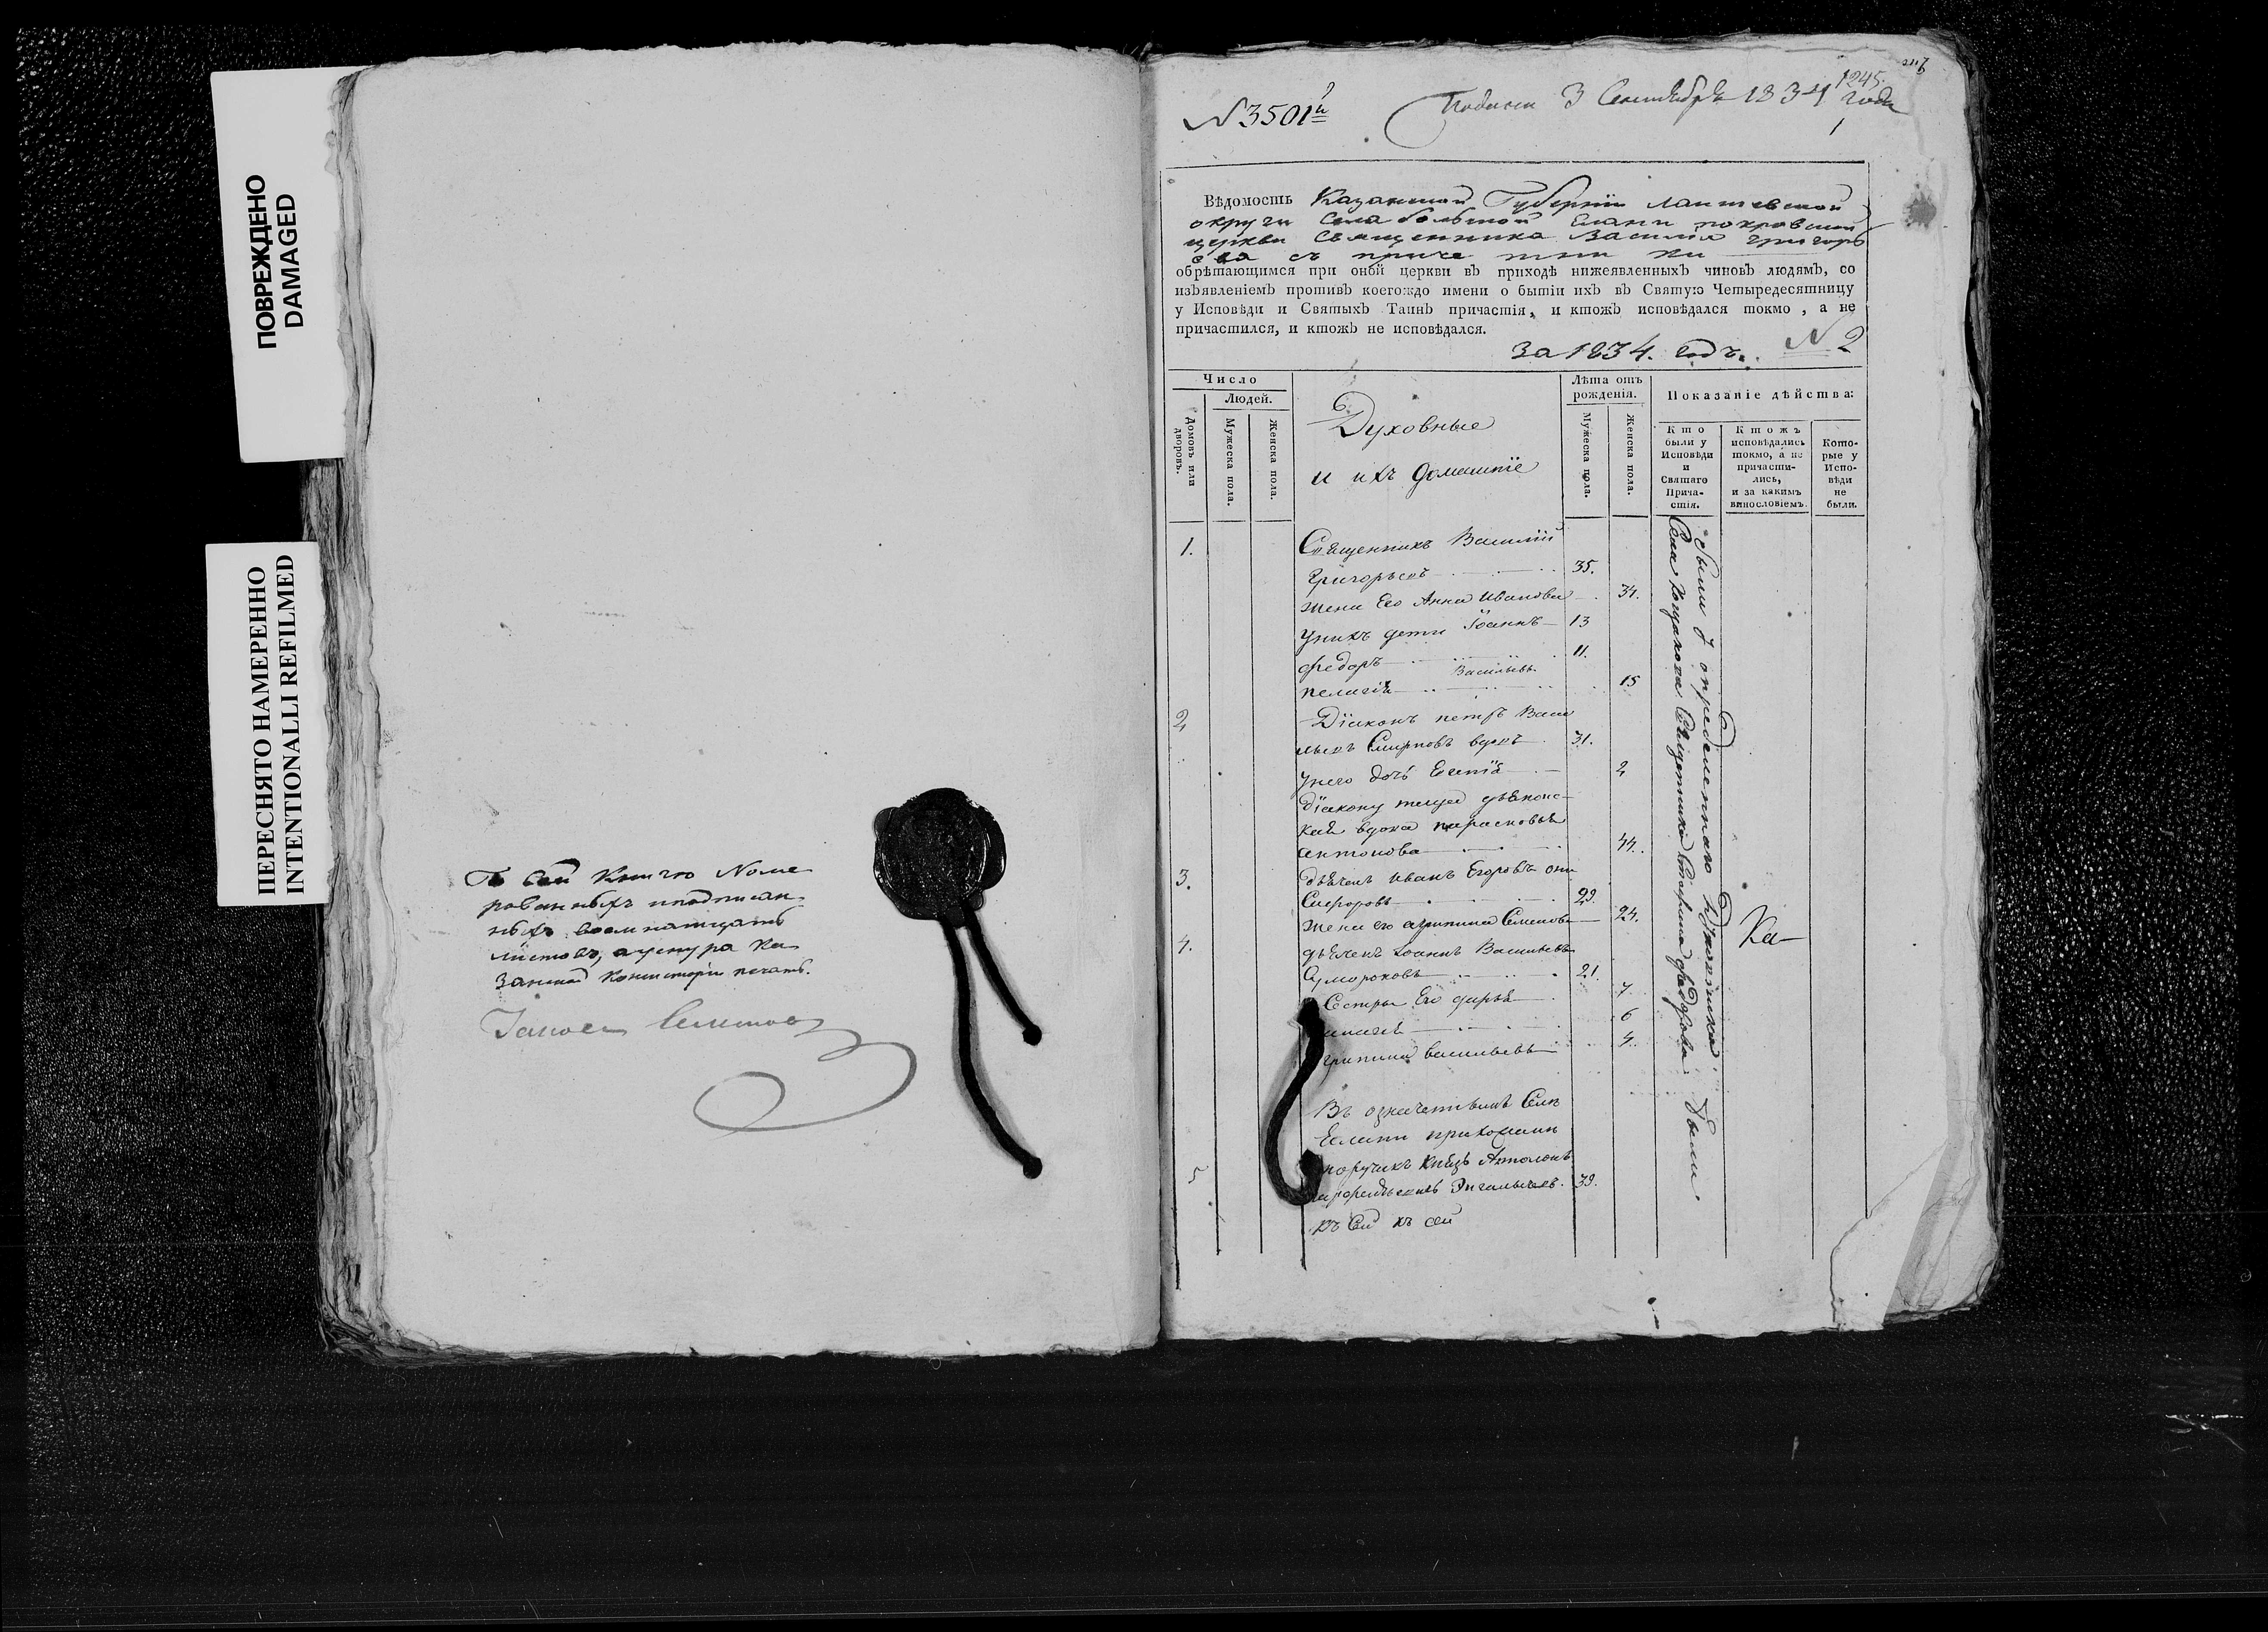 ПОВРЕЖДЕНО
DAMAGED
ПЕРЕСНЯТО НАМЕРЕННО
INTENTIONALLI REFILMED
Въ сей книгѣ Номе
рованныхъ и подписан
ныхъ восемнатцать
листовъ, а у шнура Ка
занской Консисторіи печать.
N 3501й
Подано 3 Сентября 1834 года
1245.
1
Вѣдомость Казанской Губерніи Лаишевской
округи села большой Елани покровской
церкви Священника Василія Григорь
ева съ причетники
обрѣтающимся при оной церкви въ приходѣ нижеявленныхъ чиновъ людямъ, со
изъявленіемъ противъ коегождо имени о бытіи ихъ въ Святую Четыредесятницу
у Исповѣди и Святыхъ Таинъ причастія, и ктожъ исповѣдался токмо, а не
причастился, и ктожъ не исповѣдался.
за 1834. годъ. N 2
Число
Людей.
Домовъ или дворовъ.
Мужеска пола.
Женска пола.
Духовные
и ихъ домашніе
Лѣта отъ
рожденія.
Мужеска пола.
Женска пола.
Показаніе дѣйства:
Кто
были у
Исповѣди
и
Святаго
Прича-
стія.
Ктожъ
исповѣдались
токмо, а не
причасти-
лись,
и за какимъ
винословіемъ.
Кото-
рые у
Испо-
вѣди
не
были.
1. Священникъ Василій
Григорьевъ 35.
жена Его Анна Иванова 34.
Унихъ дети Іоаннъ 13
Федоръ 11.
Васильевы
пелагія 15
2 Діаконъ петръ Васи
льевъ Смирновъ вдовъ 31.
Унего дочь Евгенія 2
Діакону теща дьяконс
кая вдова парасковья
антонова 44.
3. дьячекъ Иванъ Егоровъ онъ
29.
жена его агрипина Семенова 24.
4. дьячекъ Іоаннъ Васильевъ
Сумороковъ 21.
Сестры Его дарья 7
6
агрипина васильевы 4.
Въ означенномъ Селѣ
Елани прихожане
5 поручикъ Князь
Енгалычевъ. 39.
были у определеннаго духовника
Села Священника Федорова были